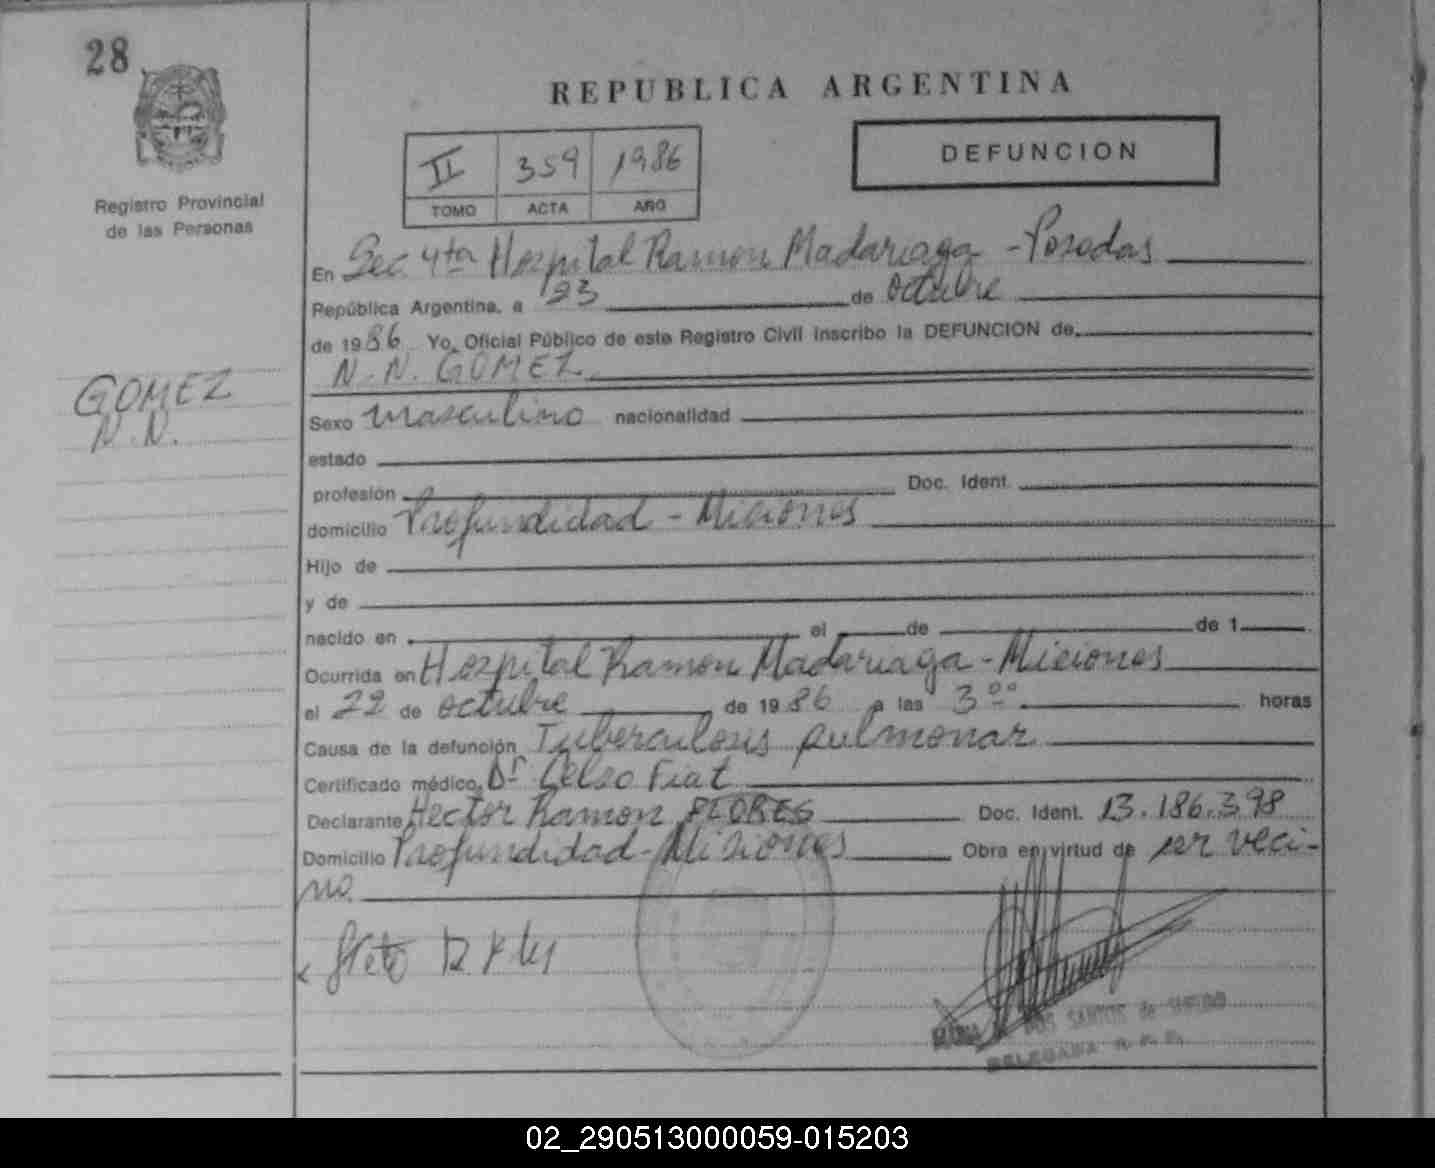 28
REPUBLICA ARGENTINA
II 359 1986
TOMO ACTA AÑO
DEFUNCION
Registro Provincial
de las Personas
En Sec 4ta Hospital Ramon Madariaga - Posadas
República Argentina, a 23 de octubre
de 1986 Yo, Oficial Público de este Registro Civil Inscribo la DEFUNCION de
N.N. GOMEZ
GOMEZ
N.N.
Sexo masculino nacionalidad
estado
profesión Doc. Ident.
domicilio Profundidad - Misiones
Hijo de
y de
nacido en el de de 1
Ocurrida en Hospital Ramon Madariaga - Misiones
el 22 de octubre de 1986 a las 3°° horas
Causa de la defunción Tuberculosis pulmonar
Certificado médico Dr Celso Fiat
Declarante Hector Ramon FLORES Doc. Ident. 13.186.398
Domicilio Profundidad - Misiones Obra en virtud de ser veci-
no.
DOS SANTOS de
DELEGADA R. P. P.
02_290513000059-015203